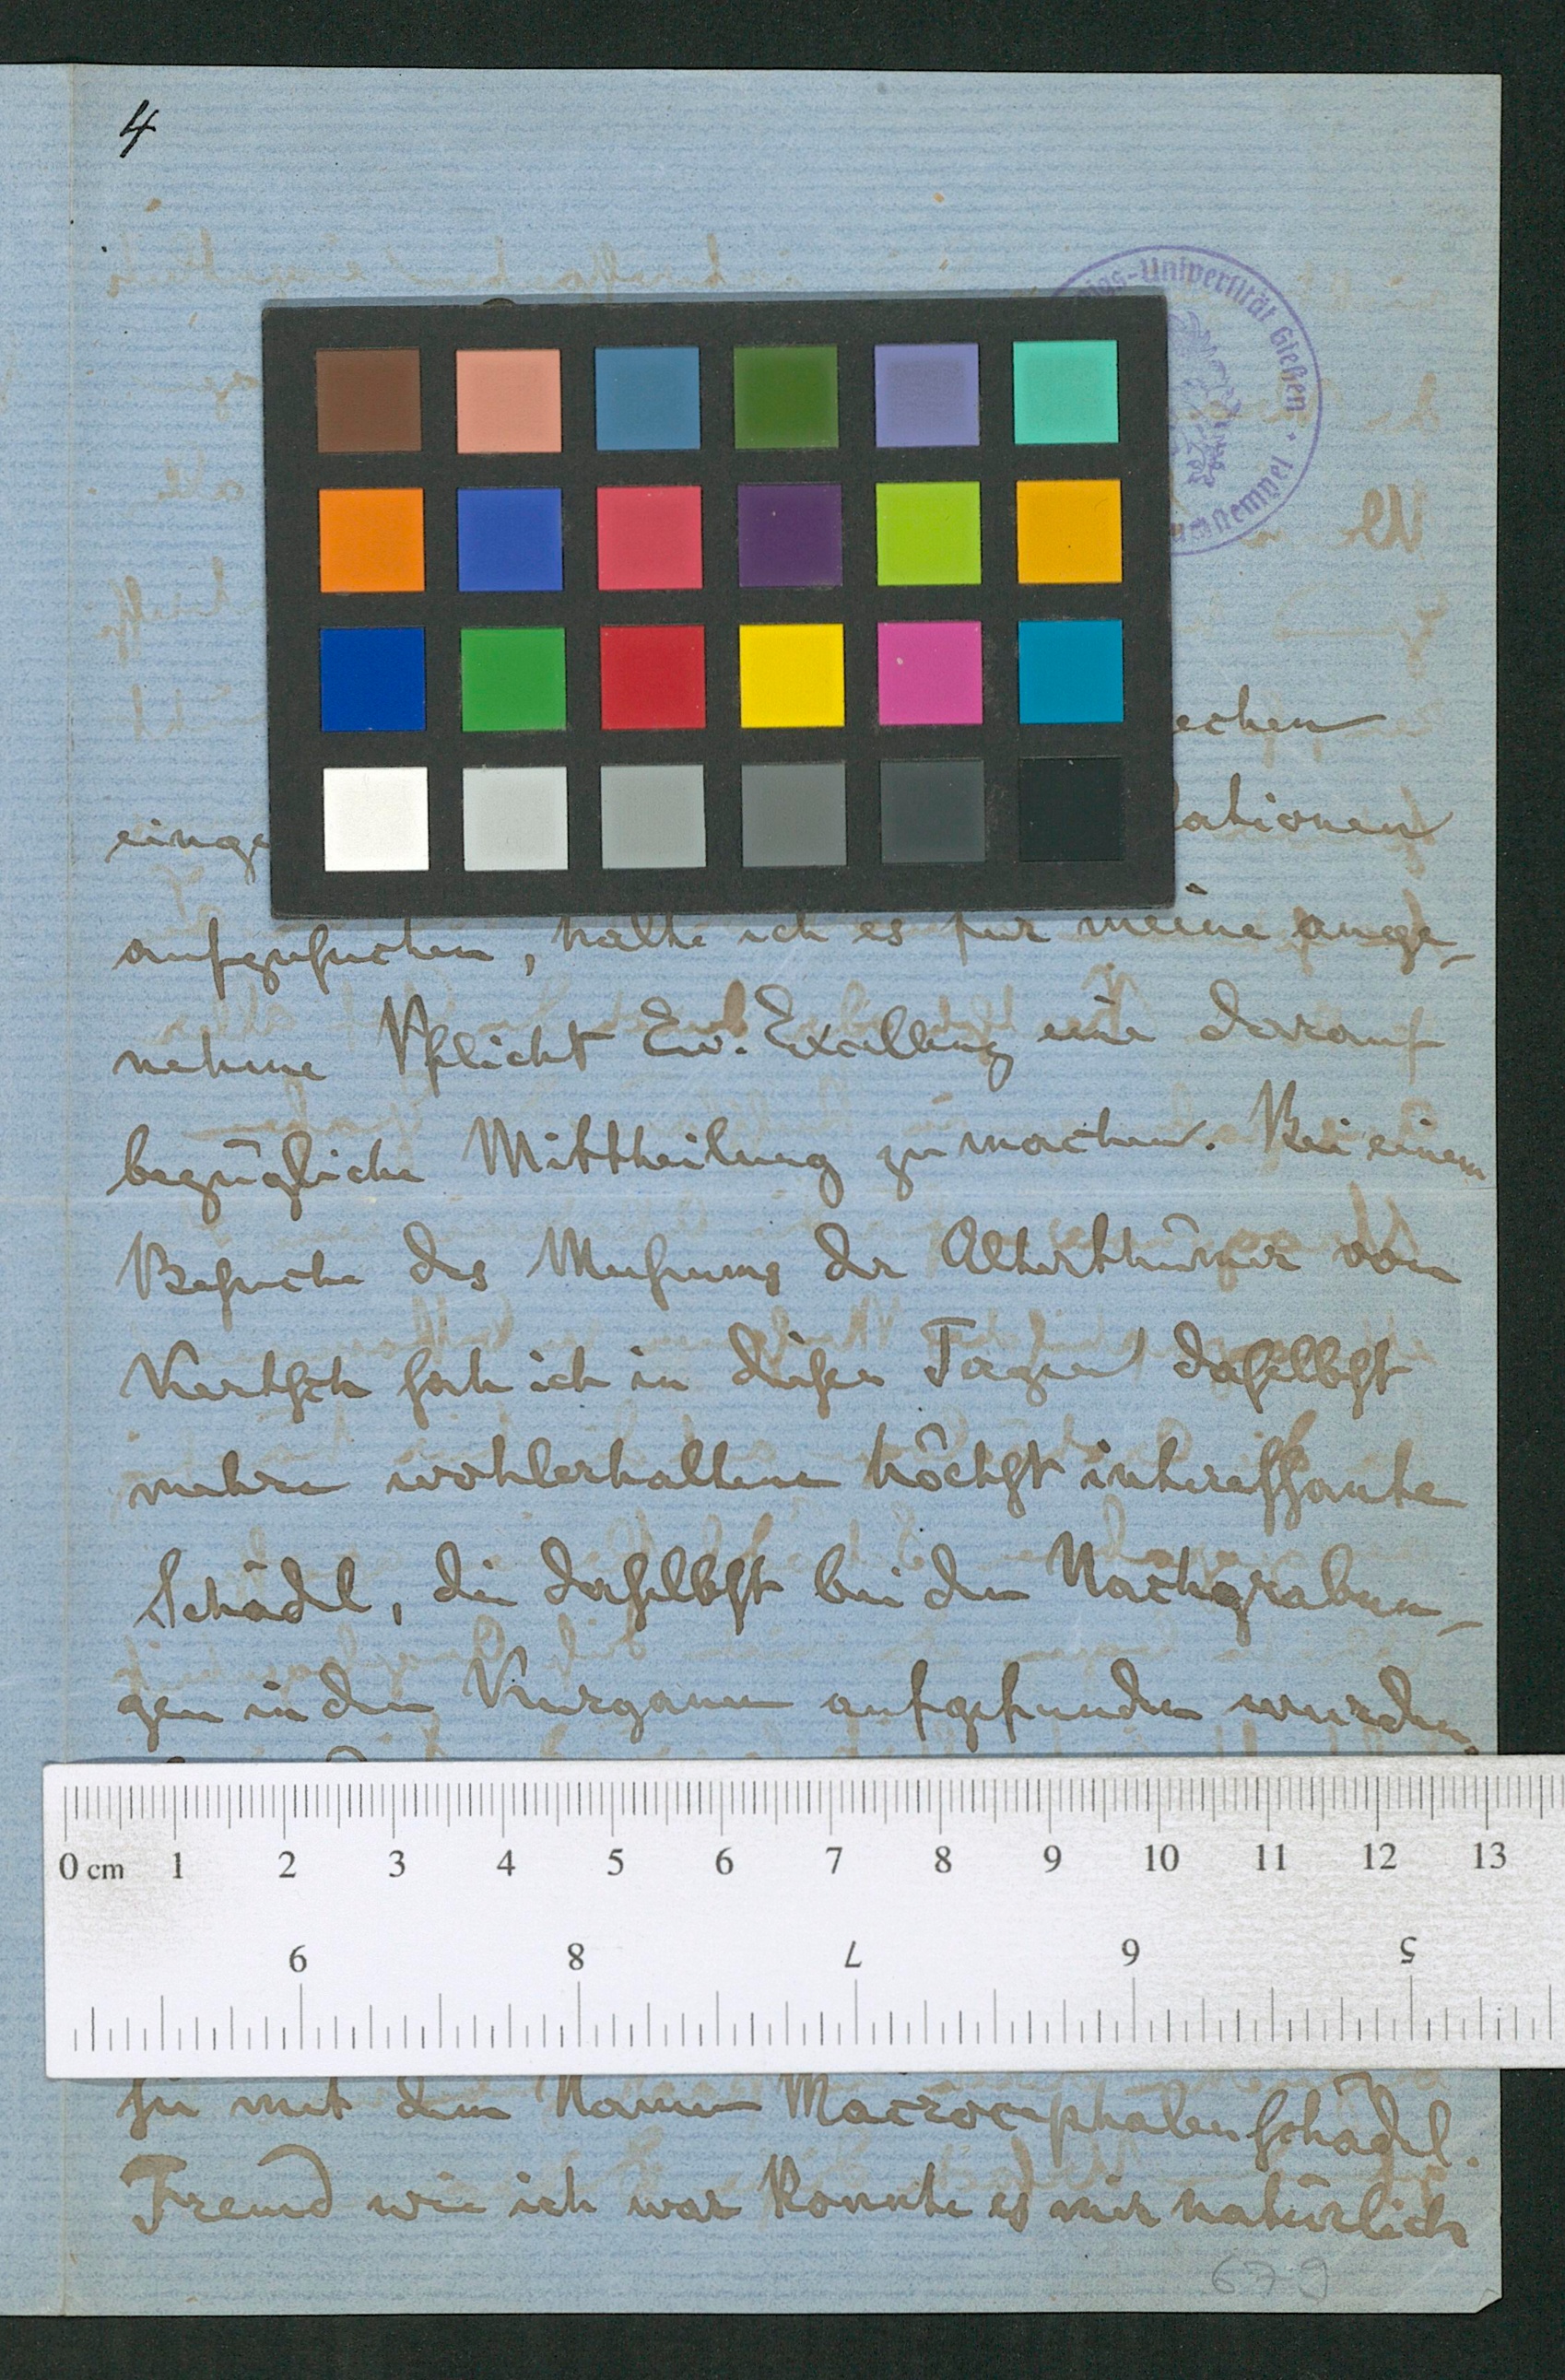 4
igs-Universität Gießen · stempel
echen
einge ationen
aufzusuchen, halte ich es für meine ange-
nehme Pflicht Ew. Excellenz eine darauf
bezügliche Mittheilung zu machen. Bei einem
Besuche des Museums der Alterthümer von
Kertsch sah ich in diesen Tagen daselbst
mehre wohlerhaltene höchst interessante
Schädel, die daselbst bei den Nachgrabun-
gen in den Kurganen aufgefunden wurden,
0 cm 1 2 3 4 5 6 7 8 9 10 11 12 13
9 8 7 6 5
sie mit dem Namen Macrocephalenschädel.
Fremd wie ich war konnte es mir natürlich
679